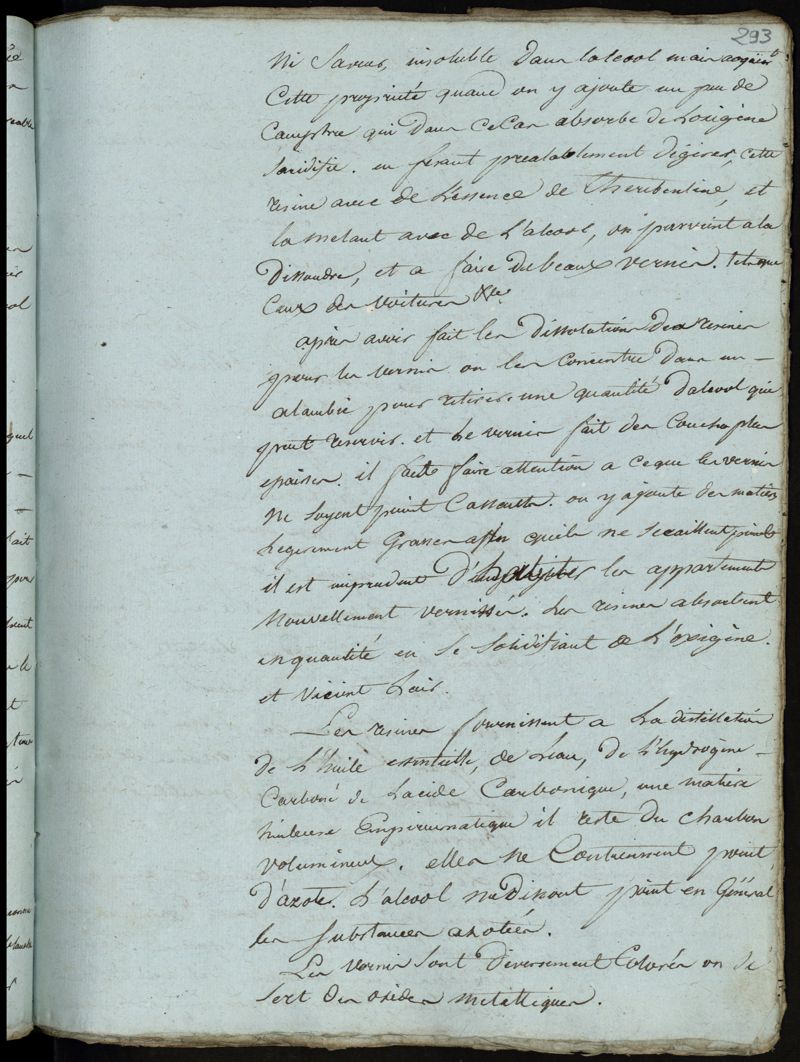 293
ni saveur, insoluble dans l'alcool mais acquiert
cette propriété quand on y ajoute un peu de
camphre qui dans ce cas absorbe de l'oxigène
s'acidifie. en fesant prealablement digérer cette
resine avec de l'essence de therebentine, et
la melant avec de l'alcool, on parvient a la
dissoudre, et a faire de beaux vernis. tels que
ceux des voitures &c.
après avoir fait les dissolutions des resines
pour les vernis on les concentre dans un —
alambic pour retirer une quantité d'alcool qui
peut reservir. et le vernis fait des couches plus
epaisses. il faut faire attention a ce que les vernis
ne soyent point cassants. on y ajoute des matières
legerement grasses afin qu'ils ne s'ecaillent point
il est imprudent d'habiter les appartements
nouvellement vernissés. les resines absorbent
en quantité en se solidifiant de l'oxigène.
et vicient l'air.
Les resines fournissent a la distillation
de l'huile essentielle, de l'eau, de l'hydrogène —
carboné de l'acide carbonique, une matière
huileuse empireumatique il reste du charbon
volumineux. elles ne contiennent point
d'azote. l'alcool ne dissout point en général
les substances azotées.
Les vernis sont diversement colorés on se
sert des oxides metalliques.